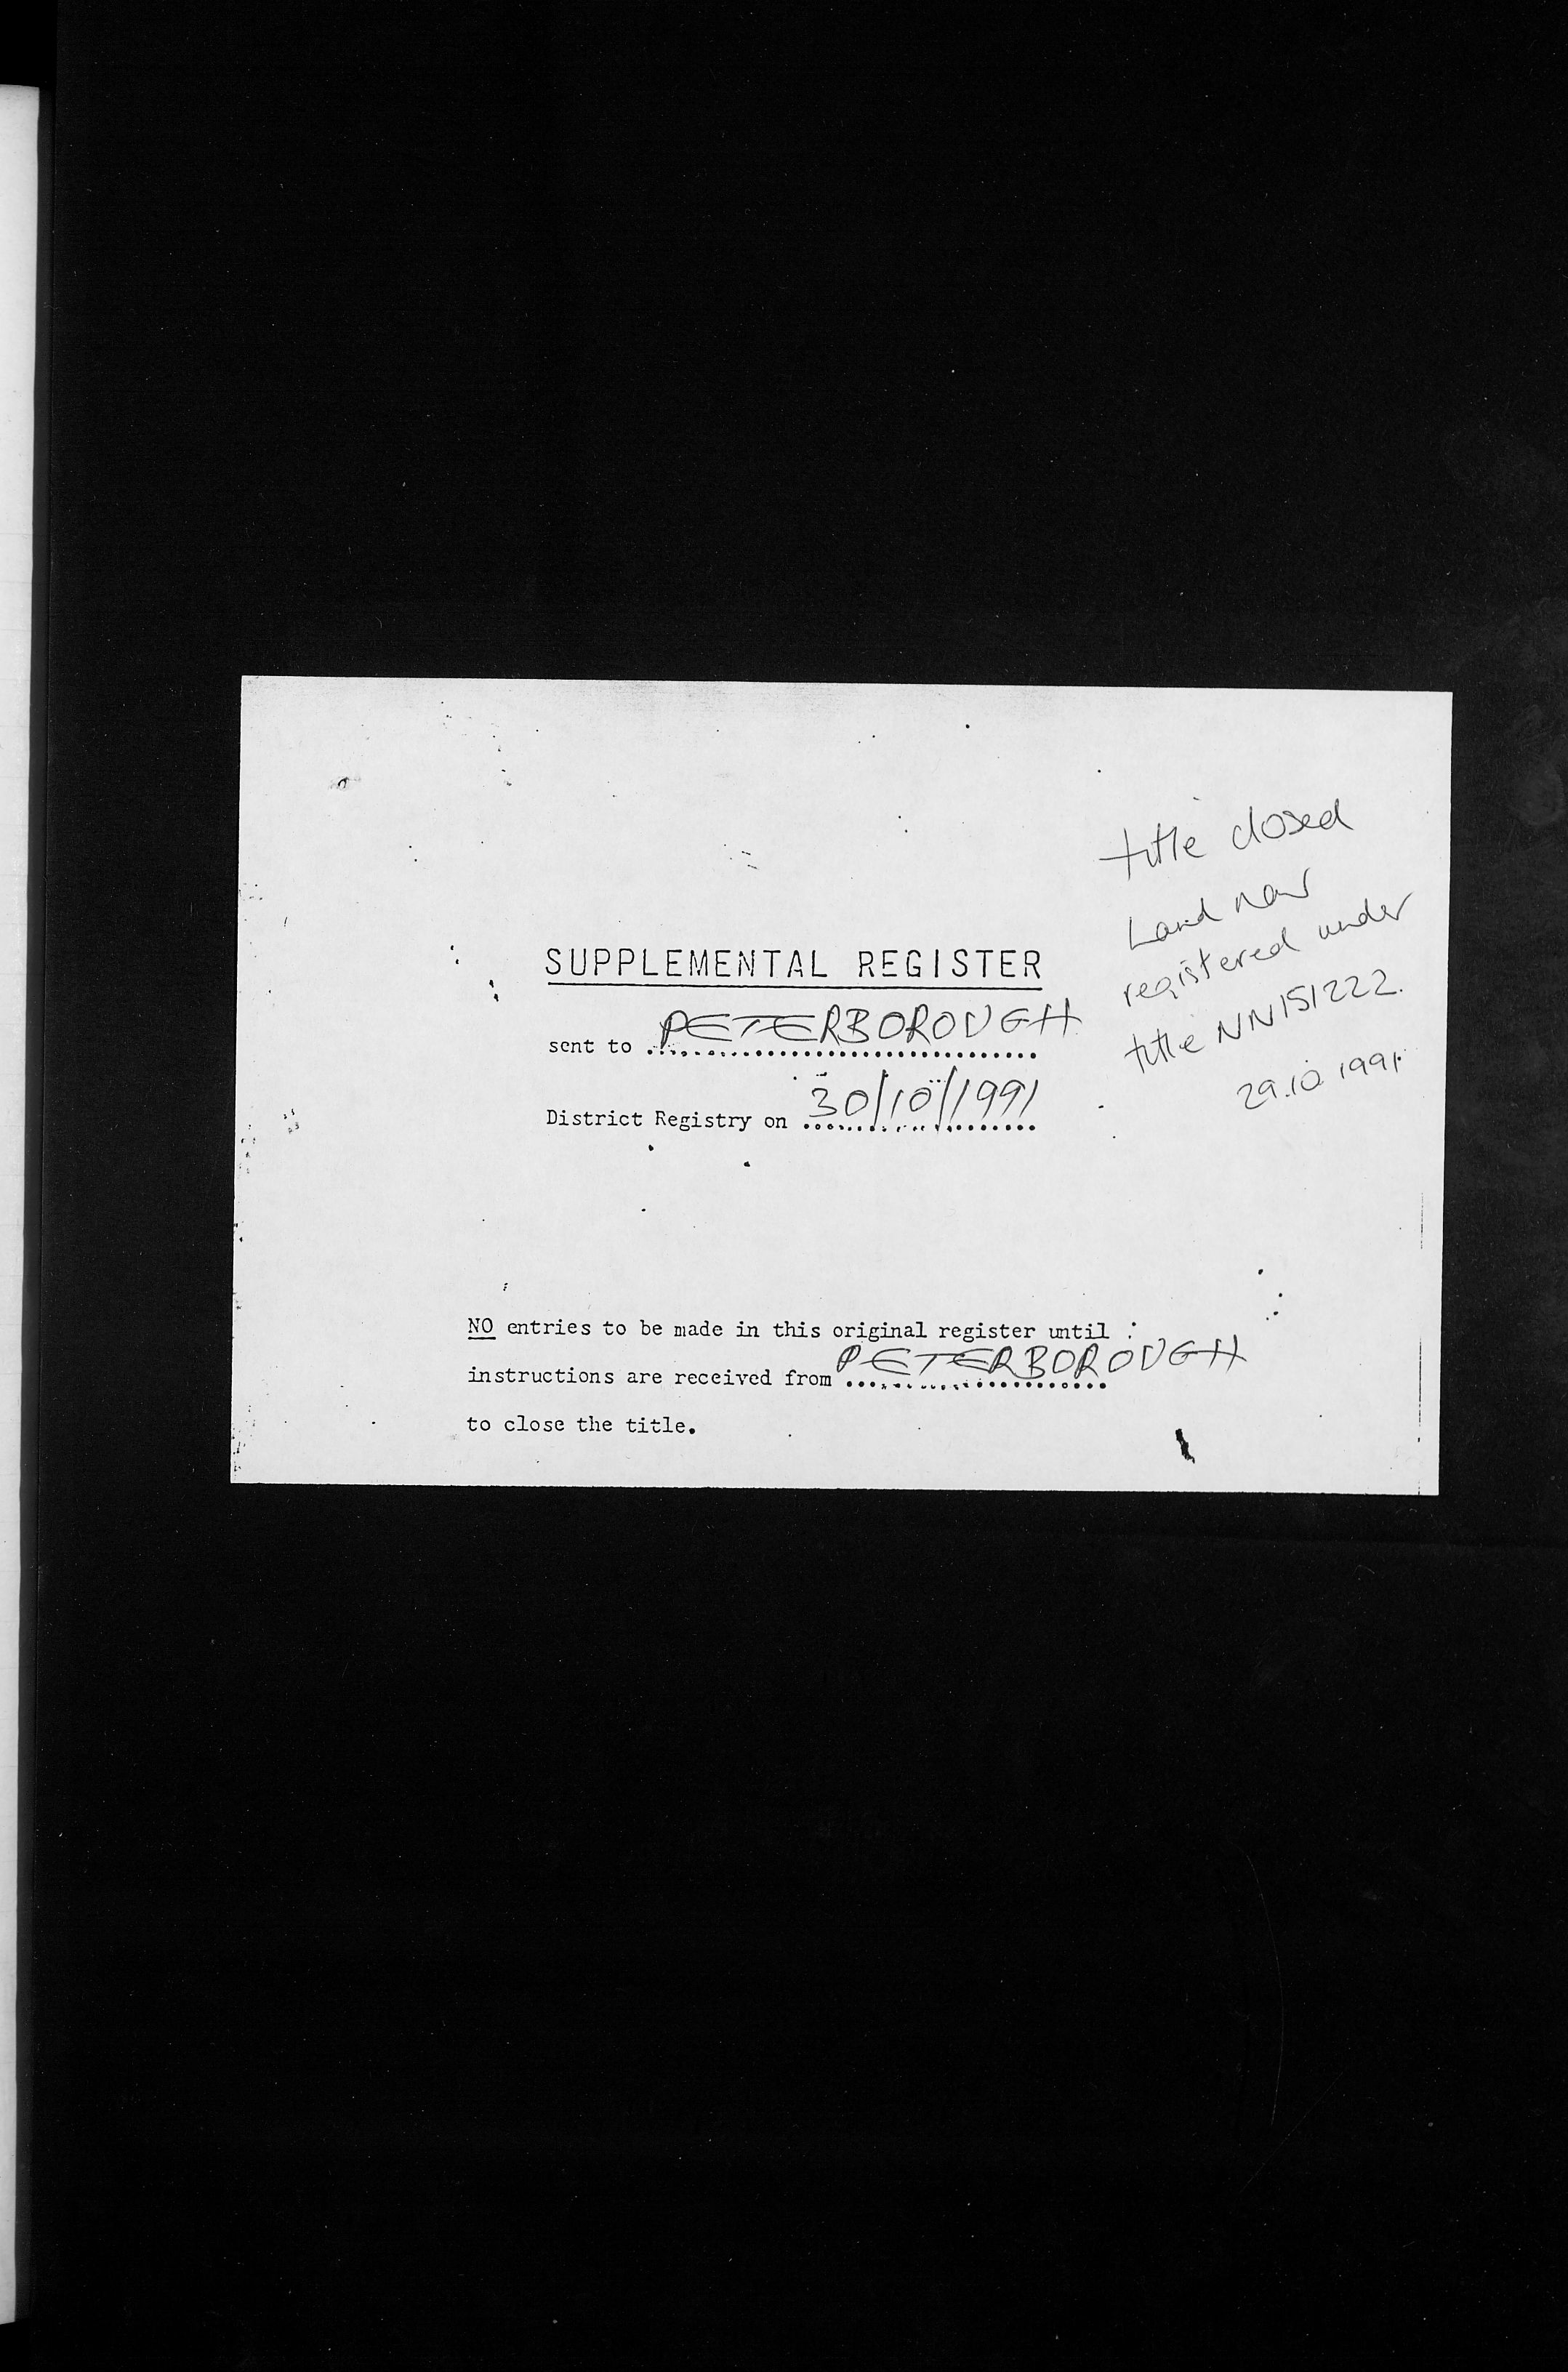 title closed
Land now
registered under
title NN151222.
29.10 1991.
SUPPLEMENTAL REGISTER
sent to PETERBOROUGH
District Registry on 30/10/1991
NO entries to be made in this original register until
instructions are received from PETERBOROUGH
to close the title.